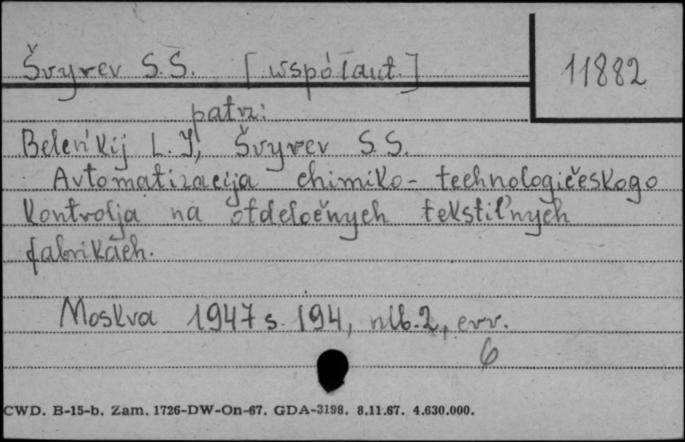 Švyrev S.S. [współaut.]
11882
patrz:
Beleńkij L. I, Švyrev S.S.
Avtomatizacija chimiko-technologičeskogo
kontrolja na otdeločnych tekstiľnych
fabrikach.
Moskva 1947 s. 194, nlb. 2, err.
6
CWD. B-15-b. Zam. 1726-DW-On-67. GDA-3198. 8.11.67. 4.630.000.